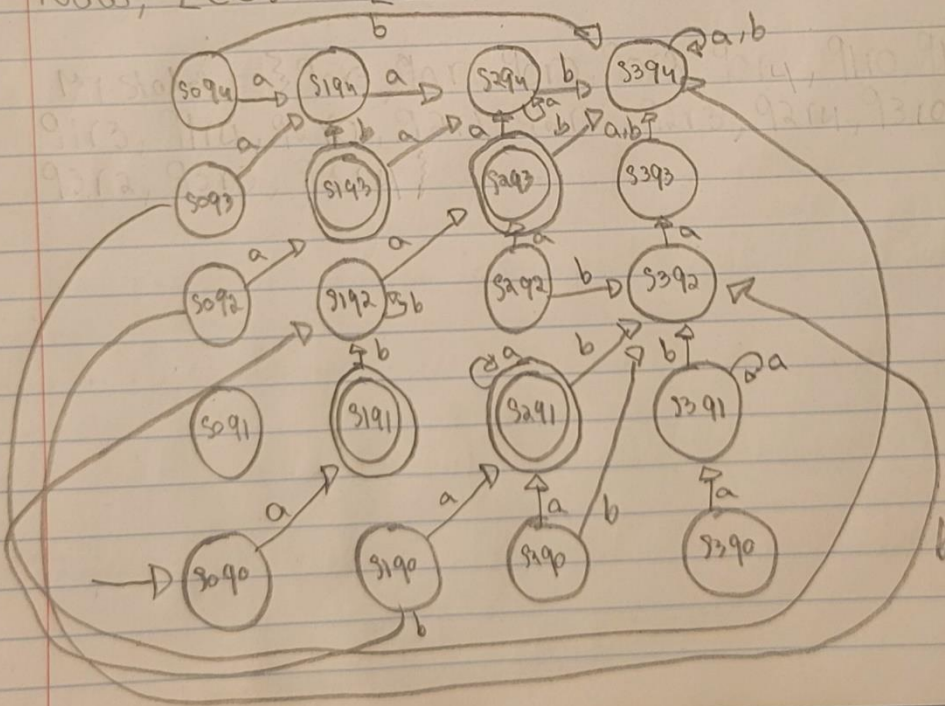 b
S0q4 a S1q4 a S2q4 b S3q4 a,b
a b a a a b a,b
S0q3 S1q3 S2q3 S3q3
a a a a
S0q2 S1q2 b S2q2 b S3q2
b a b b
S0q1 S1q1 S2q1 S3q1 a
a a a b a
S0q0 S1q0 S3q0
b